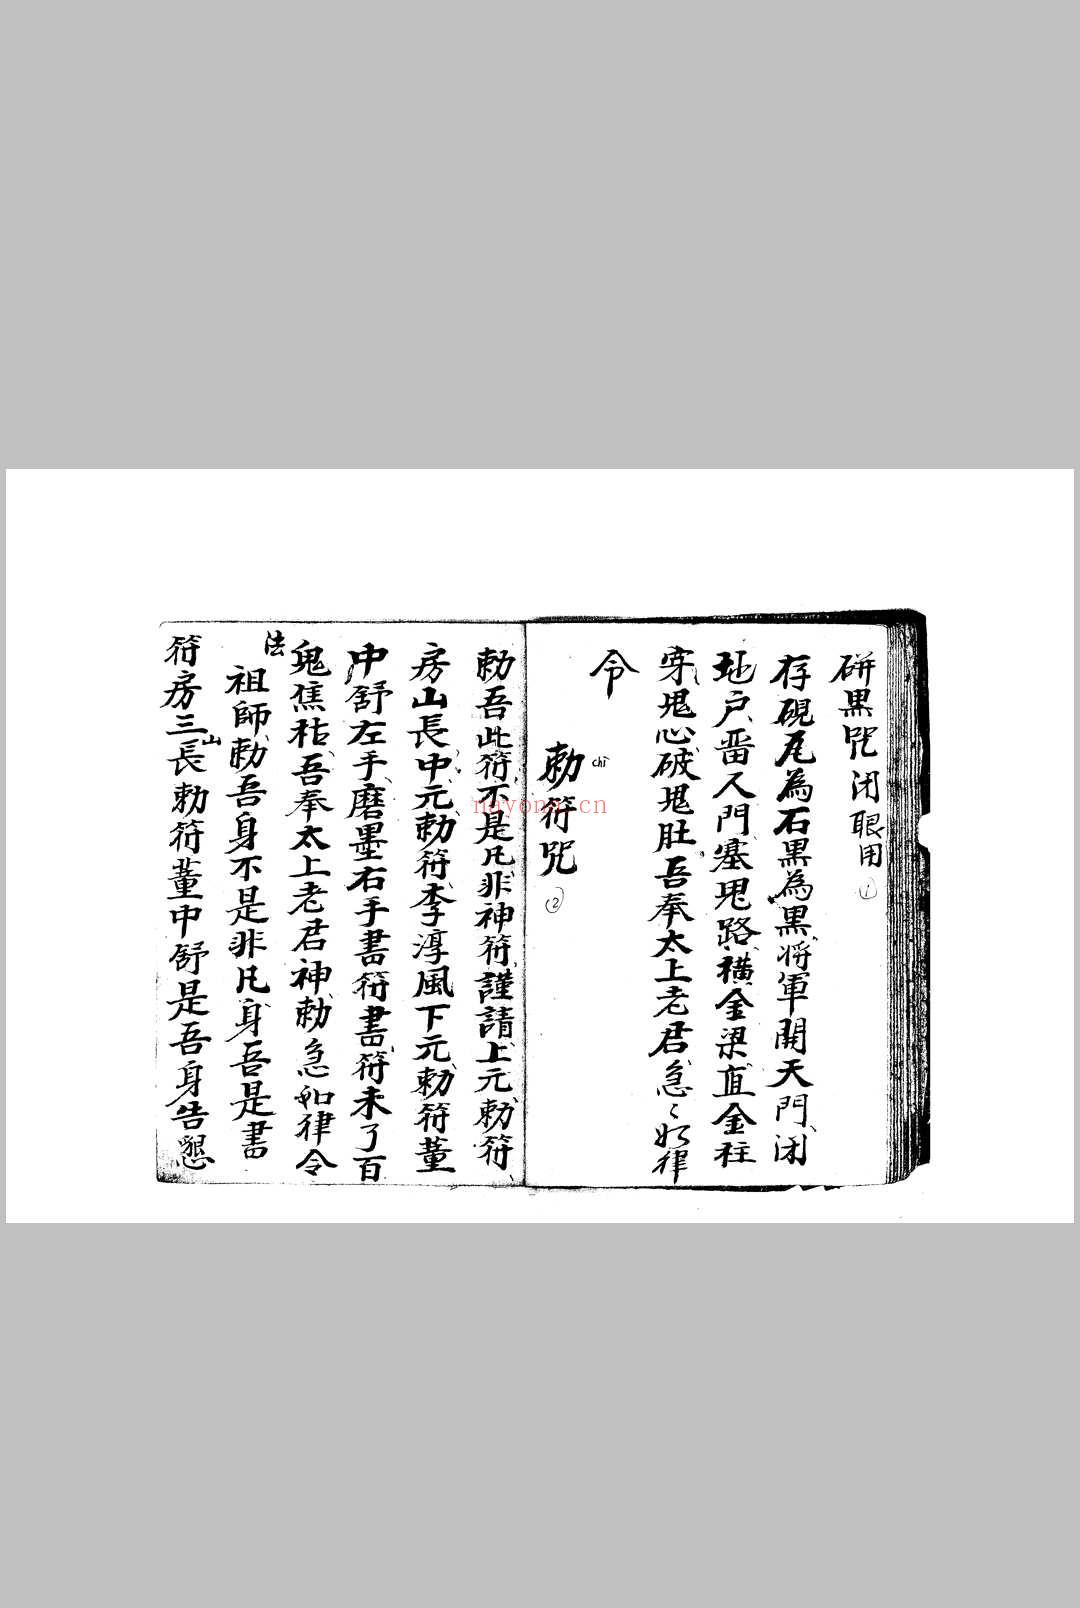 研黑咒闭眼用①
存硯瓦為石黑為黑将軍開天門闭
地户畱人門塞鬼路横金梁直金柱
穿鬼心破鬼肚吾奉太上老君急々如律
令
勅符咒②
chì
勅吾此符不是凡非神符謹請上元勅符
房山長中元勅符李淳風下元勅符董
中舒左手磨墨右手書符書符未了百
鬼焦枯吾奉太上老君神勅急如律令
法
祖師勅吾身不是非凡身吾是書
符房三山長勅符董中舒是吾身告懇
nayona.cn